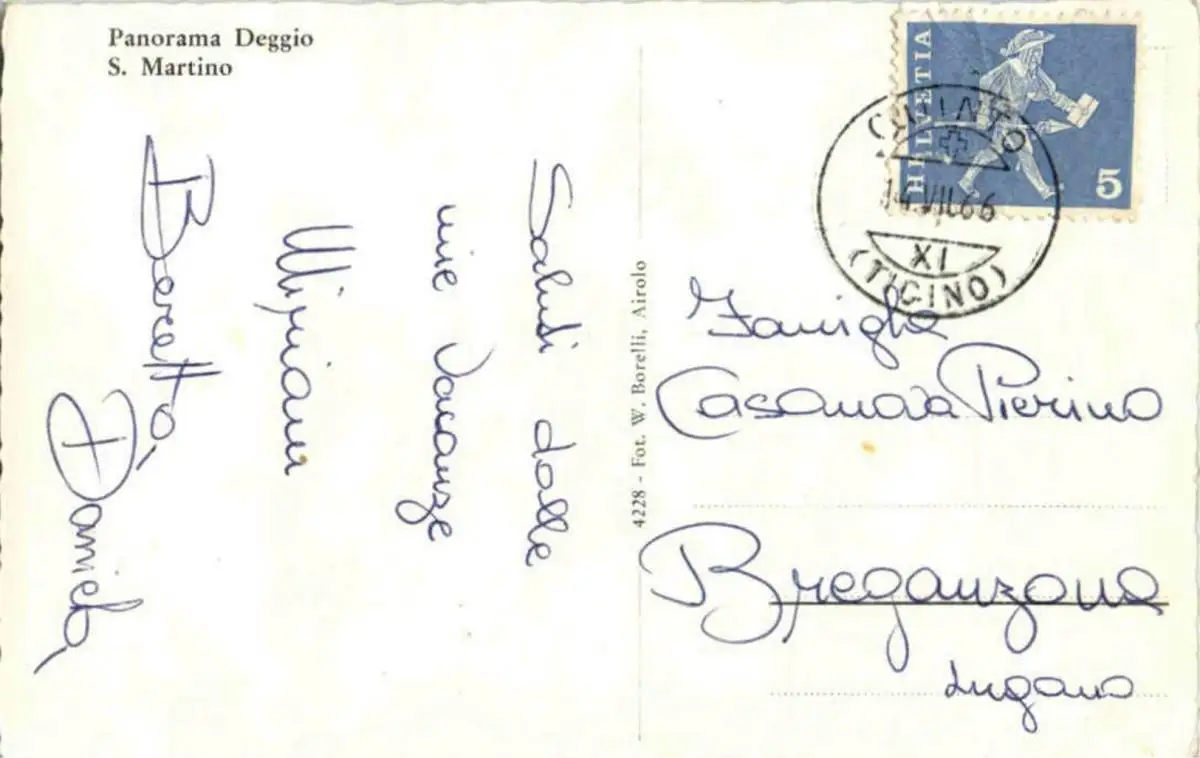 Panorama Deggio
S. Martino
Saluti dalle
mie vacanze
Daniela
4228 - Fot. W. Borelli, Airolo
HELVETIA
5
14.VII.66
XI
(TICINO)
Famiglia
Casanova Pierino
Breganzona
Lugano